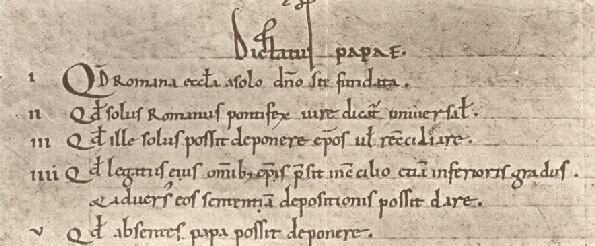 Dictatus papae.
I Qd Romana eccła a solo dño sit fundata.
II Qđ solus Romanus pontifex iure dicat̃ universał.
III Qđ ille solus possit deponere ep̃os uł rec̃ciliare.
IIII Qđ legatus eius om̃ib; ep̃is p̃sit in c̃cilio etiã inferioris gradus.
& advers̃ eos sententiã depositionis possit dare.
V Qđ absentes papa possit deponere.